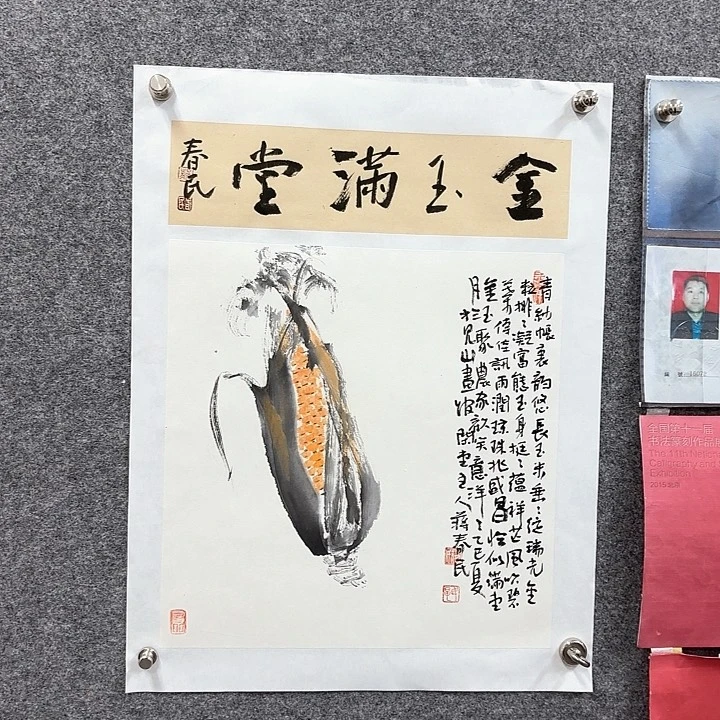 金玉滿堂
春民
青紗帳裏韵悠長玉米垂〻綻瑞光金
粒排〻凝富態玉身挺〻蘊祥芒風吹碧
葉傳佳訊雨潤珠珠兆盛昌恰似滿堂
金玉聚農家歡笑意洋〻乙巳夏
月於見山畫
堂主人蔣春民
全国第十一届
书法篆刻作品
The 11th
Calligraphy and
Exhibition